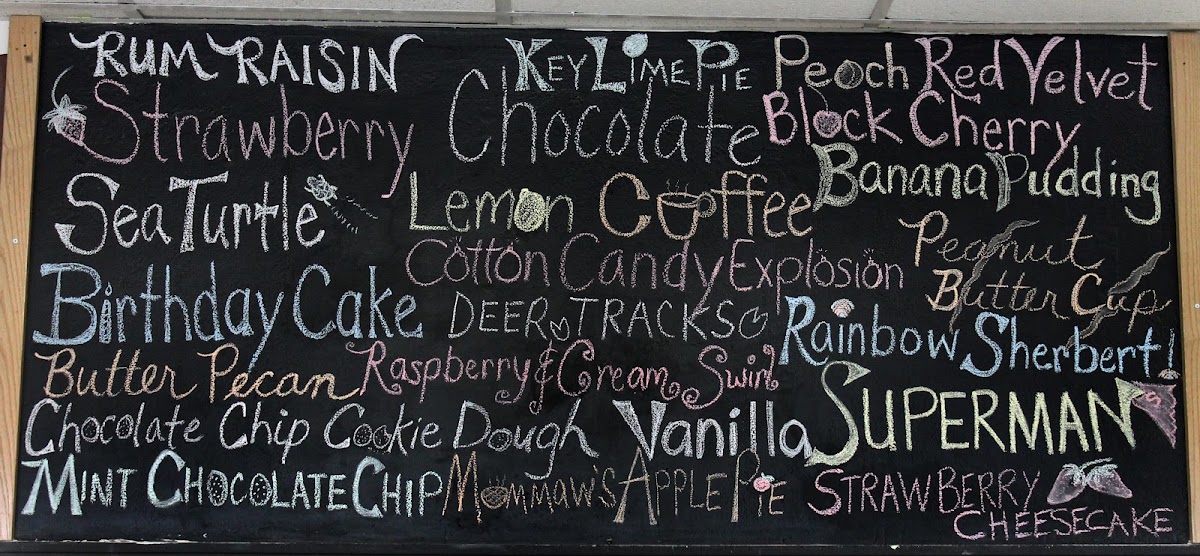 RUM RAISIN
KEY LIME PIE
Peach
Red Velvet
Strawberry
Chocolate
Black Cherry
Sea Turtle
Lemon
Coffee
Banana Pudding
Cotton Candy Explosion
Peanut
Butter Cup
Birthday Cake
DEER TRACKS
Rainbow Sherbert!
Butter Pecan
Raspberry & Cream Swirl
SUPERMAN
Chocolate Chip Cookie Dough
Vanilla
MINT CHOCOLATE CHIP
MOMMAW'S APPLE PIE
STRAWBERRY
CHEESECAKE